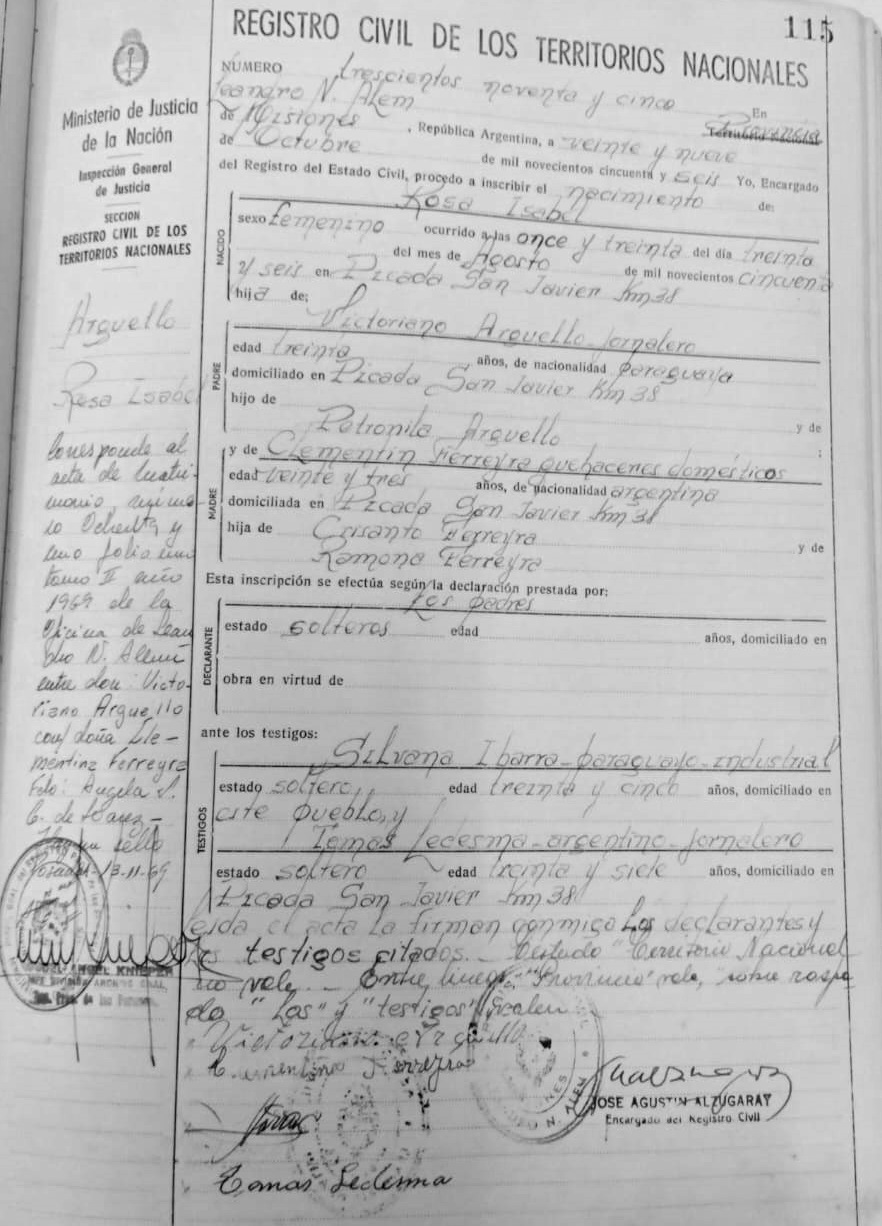 115
REGISTRO CIVIL DE LOS TERRITORIOS NACIONALES
Ministerio de Justicia
de la Nación
Inspección General
de Justicia
SECCION
REGISTRO CIVIL DE LOS
TERRITORIOS NACIONALES
Arguello
Rosa Isabel
Corresponde al
acta de matri-
monio, número
Ochenta y
uno folio uno
tomo II año
1969 de la
Oficina de Lean
dro N. Alem
entre don Victo-
riano Arguello
con doña Cle-
mentina Ferreyra
Fdo: Angela
C. de
sello
Posadas 13-11-69
ANGEL KNIEPER
NUMERO trescientos noventa y cinco En
Leandro N. Alem Provincia
Territorio Nacional
de Misiones , República Argentina, a veinte y nueve
de Octubre de mil novecientos cincuenta y seis Yo, Encargado
del Registro del Estado Civil, procedo a inscribir el nacimiento de:
NACIDO
Rosa Isabel
sexo femenino ocurrido a las once y treinta del día treinta
del mes de Agosto de mil novecientos cincuenta
y seis en Picada San Javier Km 38
hija de:
PADRE
Victoriano Arguello jornalero
edad treinta años, de nacionalidad paraguaya
domiciliado en Picada San Javier Km 38
hijo de
Petronila Arguello y de
;
MADRE
y de Clementin Ferreyra quehaceres domésticos
edad veinte y tres años, de nacionalidad argentina
domiciliada en Picada San Javier Km 38
hija de Crisanto Ferreyra y de
Ramona Ferreyra
Esta inscripción se efectúa según la declaración prestada por:
DECLARANTE
Los padres
estado solteros edad años, domiciliado en
obra en virtud de
ante los testigos:
TESTIGOS
Silvana Ibarra - paraguayo - industrial
estado soltero edad treinta y cinco años, domiciliado en
este pueblo, y
Tomas Ledesma - argentino - jornalero
estado soltero edad treinta y siete años, domiciliado en
Picada San Javier Km 38
Leida el acta la firman conmigo los declarantes y
los testigos citados. - Testado "Territorio Nacional
no vale. - Entre lineas: "Provincia" vale, sobre raspa
do "Los" y "testigos" valen
Victoriano Arguello
Clementina Ferreyra
JOSE AGUSTIN ALZUGARAY
Encargado del Registro Civil
N. ALEM
Tomas Ledesma